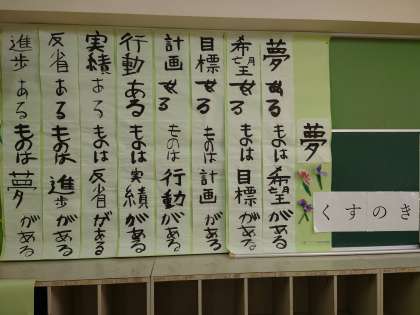 夢
夢あるものは希望がある
希望あるものは目標がある
目標あるものは計画がある
計画あるものは行動がある
行動あるものは実績がある
実績あるものは反省がある
反省あるものは進歩がある
進歩あるものは夢がある
くすのき